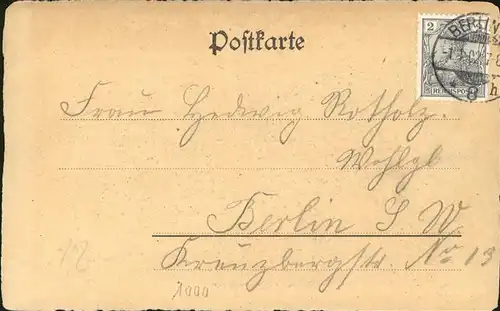 Postkarte
2
REICHSPOST
BERLIN
8
h
Frau Hedwig Rotholz.
Wohlgb
Berlin S W.
Kreuzbergstr. No 13
1000